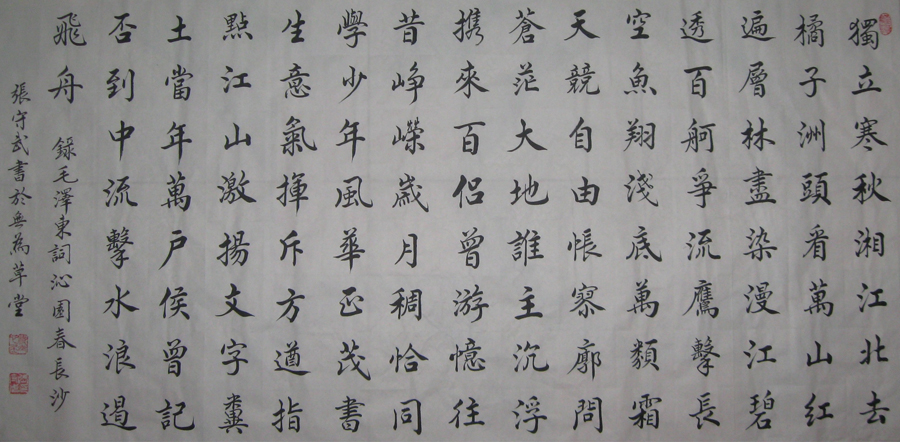 獨立寒秋湘江北去
橘子洲頭看萬山紅
遍層林盡染漫江碧
透百舸爭流鷹擊長
空魚翔淺底萬類霜
天競自由悵寥廓問
蒼茫大地誰主沉浮
携來百侶曾游憶往
昔崢嶸歲月稠恰同
學少年風華正茂書
生意氣揮斥方遒指
點江山激揚文字糞
土當年萬戶侯曾記
否到中流擊水浪遏
飛舟 錄毛澤東詞沁園春長沙
張守武書於無為草堂